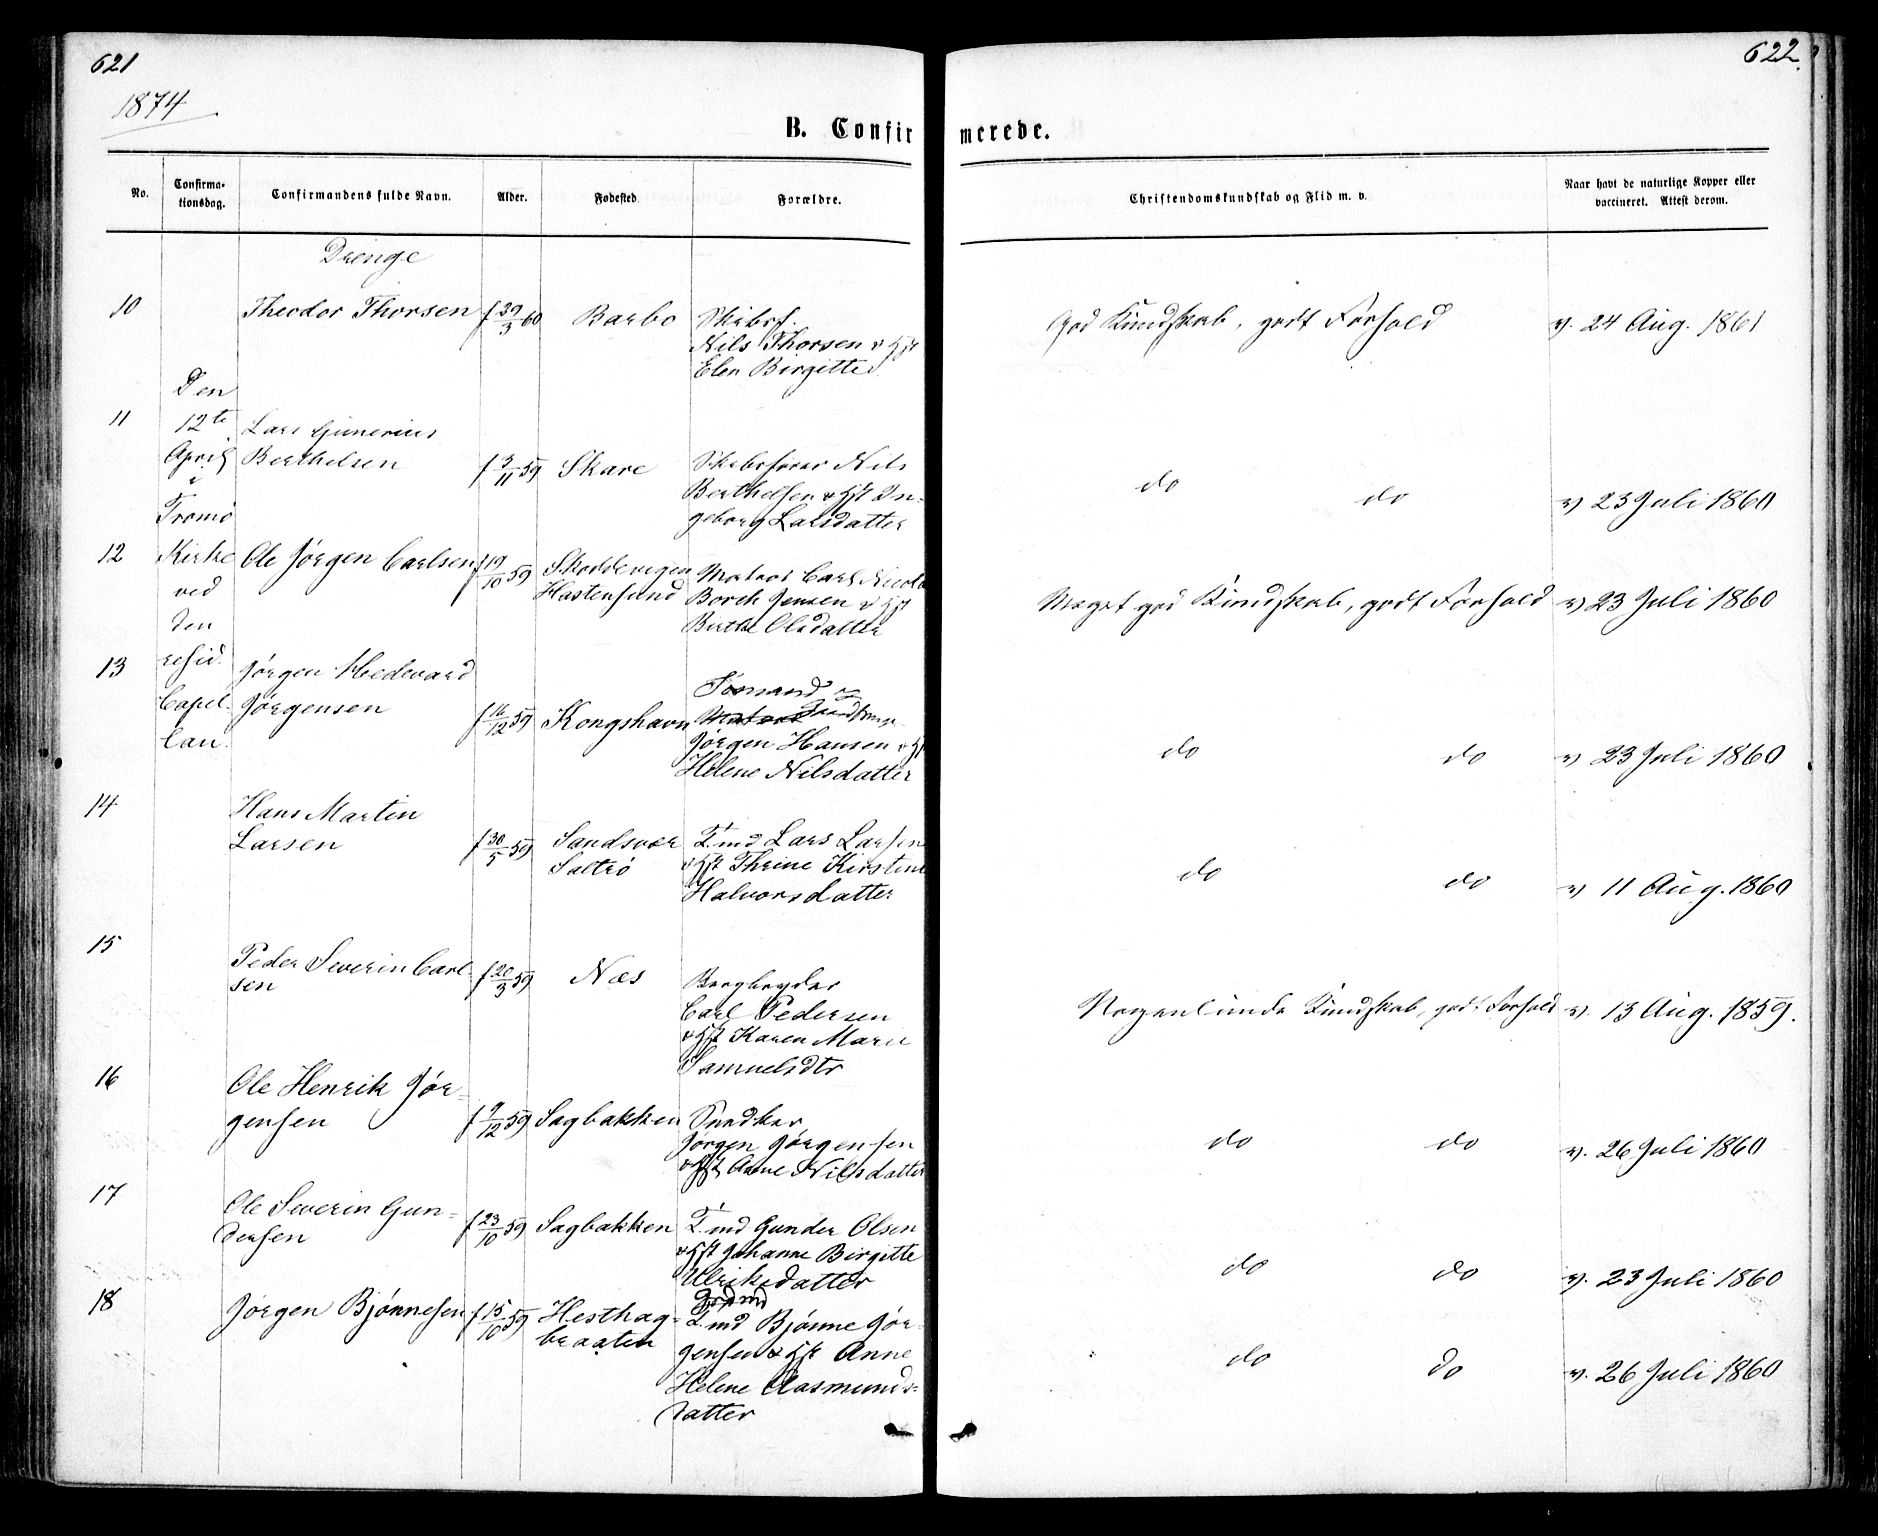 621
622.
1874
B. Confirmerede.
No.
Confirma-
tionsdag.
Confirmandens fulde Navn.
Alder.
Fødested.
Forældre.
Christendomskundskab og Flid m. v.
Naar havt de naturlige Kopper eller
vaccineret. Attest derom.
Drenge
Den
12te
April
i
Tromø
Kirke
ved
den
resid.
Capel-
lan.
10
Theodor Thorsen
f 29/3 60
Barbo
Skibsf.
Nils Thorsen & Hst
Elen Birgitte
God Kundskab, godt Forhold
v. 24 Aug. 1861
11
Lars Gunerius
Berthelsen
f 3/11 59
Skare
Skibsfører Nils
Berthelsen & Hst In-
geborg Larsdatter
do do
v 23 Juli 1860
12
Ole Jørgen Carlsen
f 19/10 59
Skoddevigen
Hastensund
Matros Carl Nicolai
Borch Jensen & Hst
Birthe Olsdatter
Meget god Kundskab, godt Forhold
v 23 Juli 1860
13
Jørgen Hedevard
Jørgensen
f 16/12 59
Kongshavn
Sømand
Matros
Jørgen Hansen & Hst
Helene Nilsdatter
do do
v 23 Juli 1860
14
Hans Martin
Larsen
f 30/5 59
Sandsvær
Saltrø
T.md Lars Larsen
& Hst Thrine Kirstine
Halvorsdatter
do do
v 11 Aug. 1860
15
Peder Severin Carl-
sen
f 20/3 59
Næs
Bergbryder
Carl Pedersen
& Hst Karen Marie
Samuelsdtr
Nogenlunde Kundskab, god Forhold
v. 13 Aug. 1859.
16
Ole Henrik Jør-
gensen
f 9/12 59
Sagbakken
Snedker
Jørgen Jørgensen
& Hst Anne Nilsdatter
do do
v. 26 Juli 1860
17
Ole Severin Gun-
dersen
f 23/10 59
Sagbakken
T.md Gunder Olsen
& Hst Johanne Birgitte
Ulriksdatter
do do
v. 23 Juli 1860
18
Jørgen Bjønnesen
f 15/10 59
Hesthag-
braaten
Grdmd
T.md Bjønne Jør-
gensen & Hst Anne
Helene Aasmunds-
datter
do do
v. 26 Juli 1860